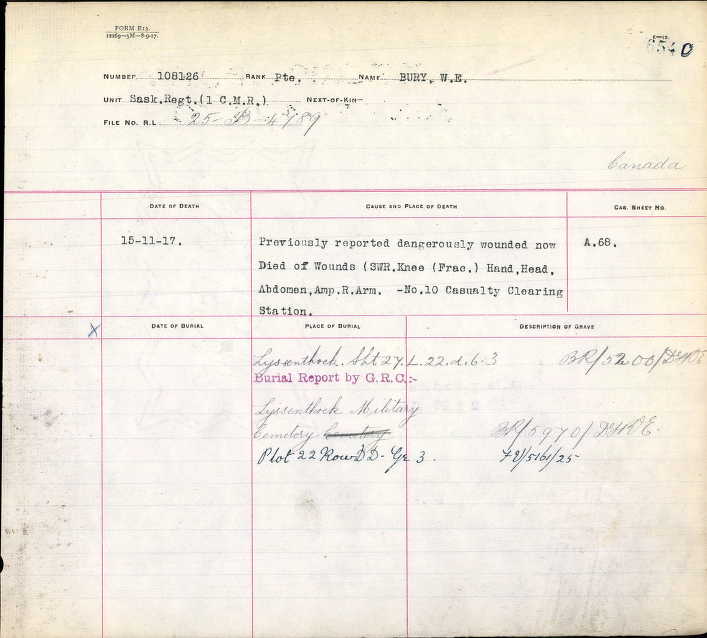 FORM R15.
12169—5M—8-9-17.
6540
NUMBER 108126 RANK Pte. NAME BURY, W.E.
UNIT Sask.Regt.(1 C.M.R.) NEXT-OF-KIN—
FILE NO. R.L. 25-B-4789
Canada
DATE OF DEATH CAUSE AND PLACE OF DEATH CAS. SHEET NO.
15-11-17. Previously reported dangerously wounded now A.68.
Died of Wounds (SWR.Knee (Frac.) Hand,Head,
Abdomen,Amp.R.Arm. -No.10 Casualty Clearing
Station.
X DATE OF BURIAL PLACE OF BURIAL DESCRIPTION OF GRAVE
Lyssenthoek. Sht 27. L.22.d.6.3 BR/5200/
Burial Report by G.R.C.:-
Lyssenthoek Military
Cemetery Cemetery BR/5970/
Plot 22 Row DD- Gr 3. /5161/25